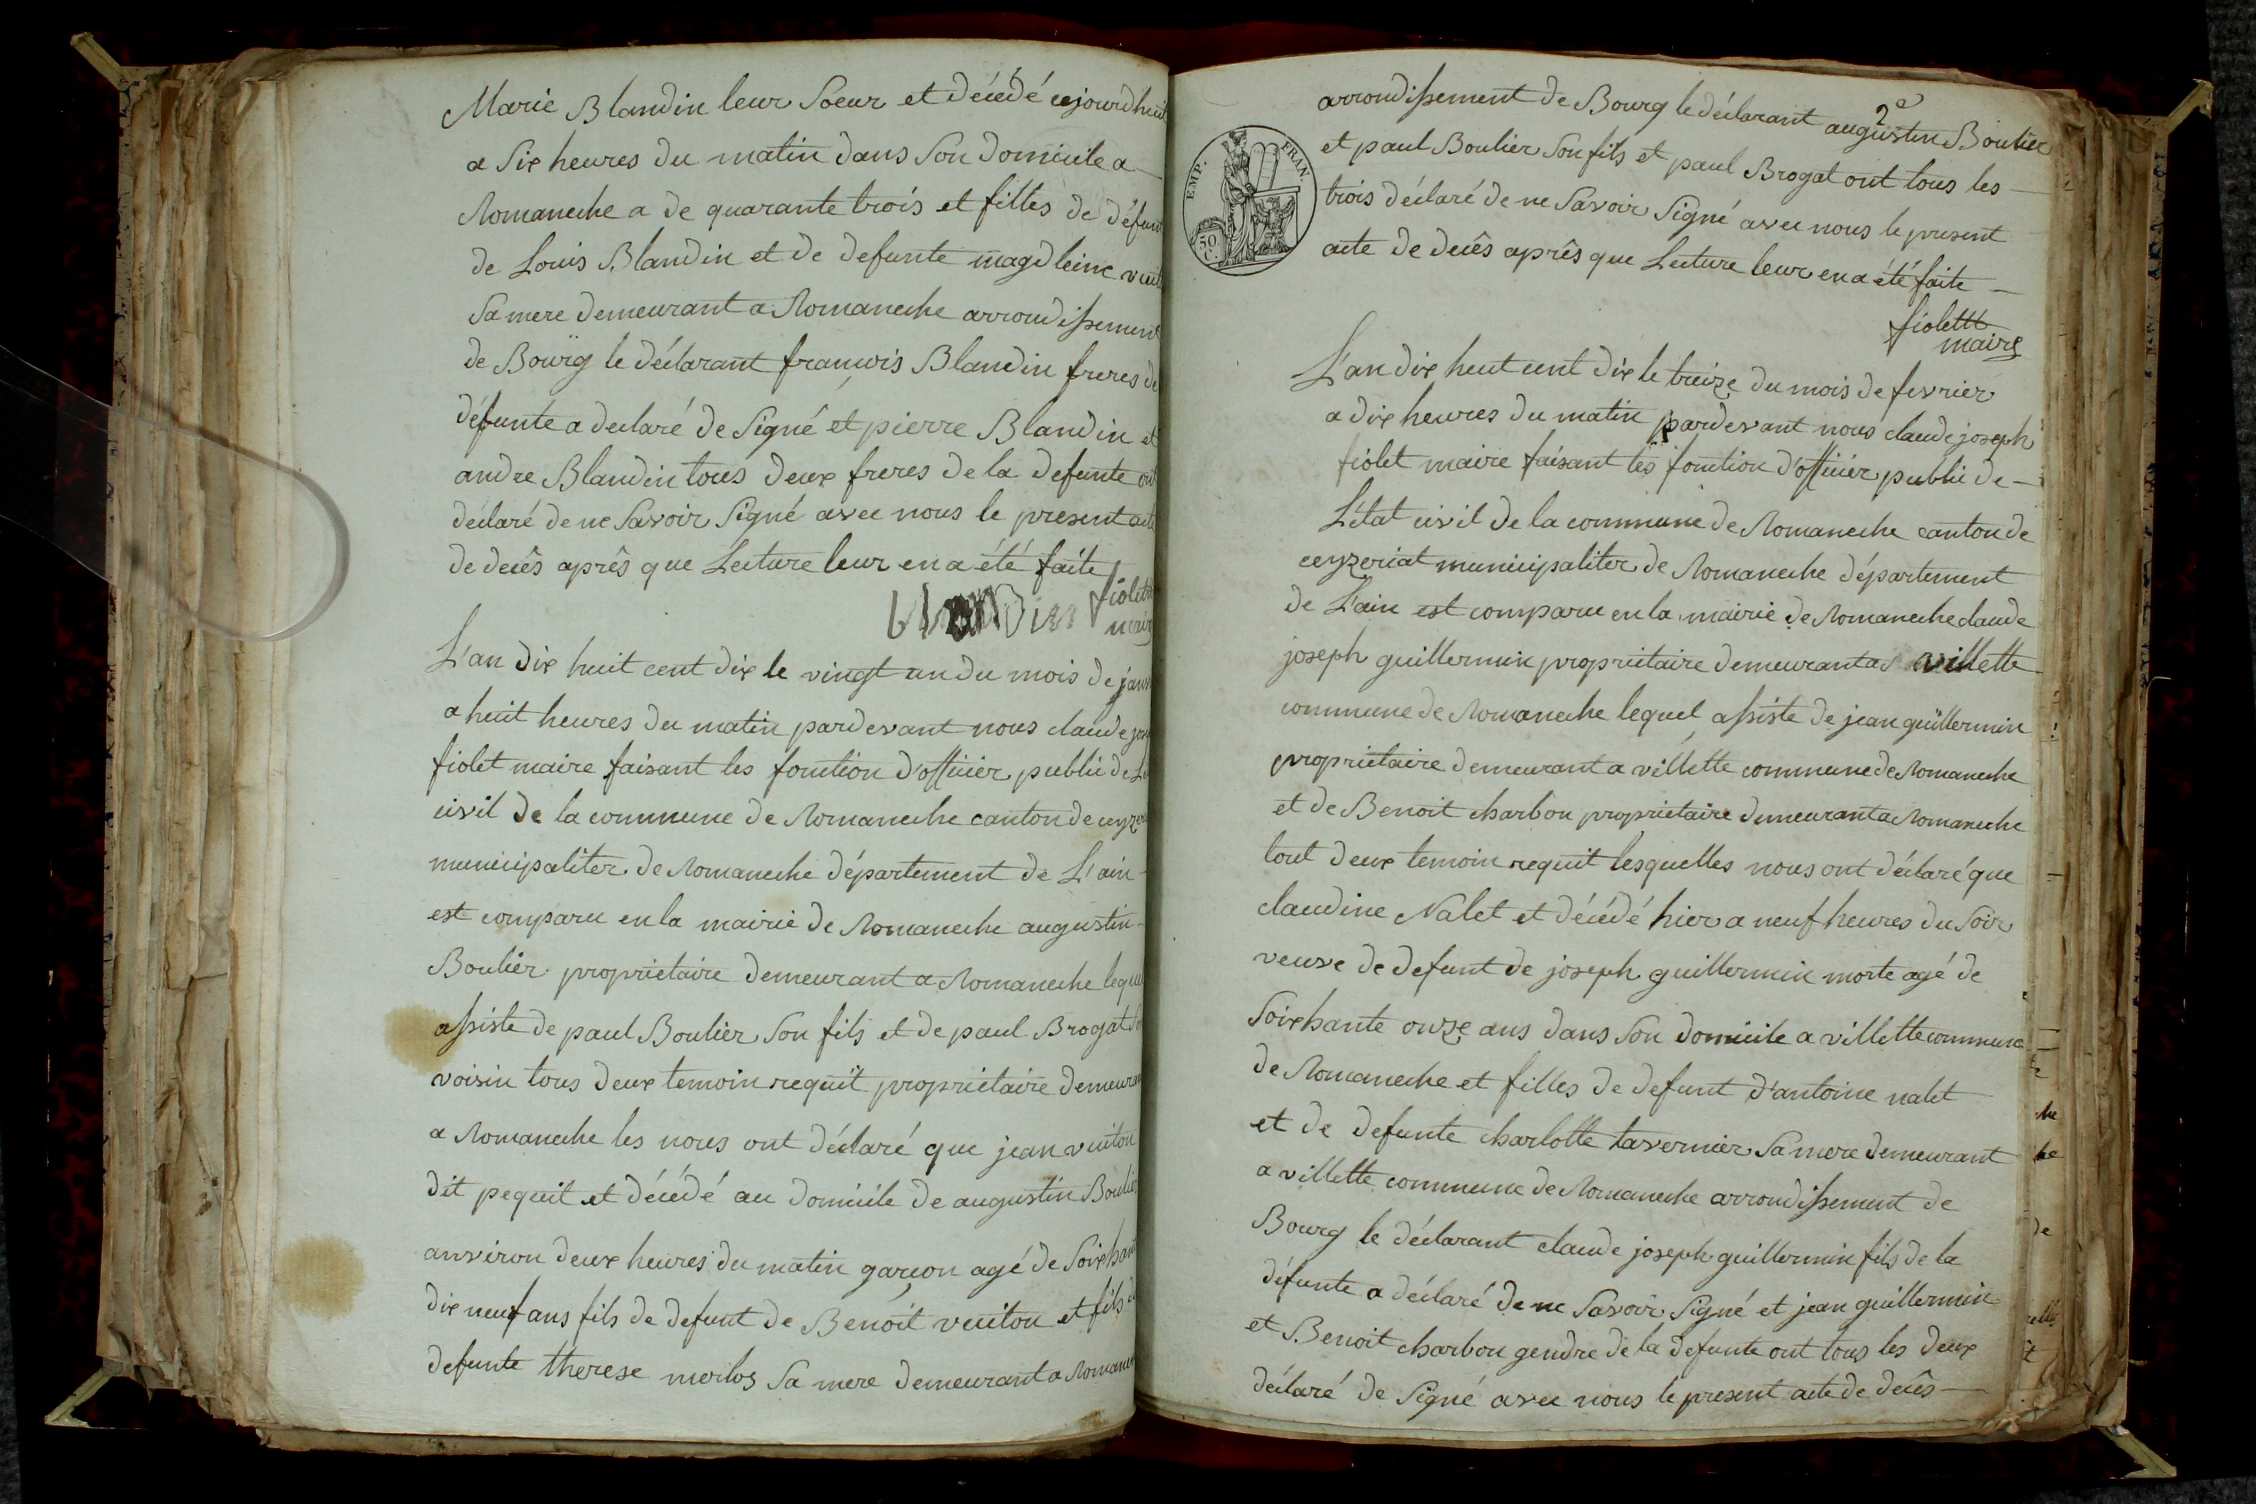 Marie Blandin leur Soeur et décédé cejourdhuit
a Six heures du matin dans Son domicile a
Romaneche a de quarante trois et filles de défunt
de Louis Blandin et de defunte magdleine
Sa mere demeurant a Romaneche arrondissement
de Bourg le déclarant françois Blandin freres de
défunte a declaré de Signé et pierre Blandin et
andre Blandin tous deux freres de la defunte ont
déclaré de ne Savoir Signé avec nous le present acte
de decês aprês que Lecture leur en a été faite
blandin fiolet
maire
L'an dix huit cent dix le vingt un du mois de janv
a huit heures du matin pardevant nous claude jos
fiolet maire faisant les fonction d'officier public de L'
civil de la commune de Romaneche canton de ceyzer
municipaliter de Romaneche département de L'ain
est comparu en la mairie de Romaneche augustin
Boulier propriétaire demeurant a Romaneche lequel
assiste de paul Boulier Son fils et de paul Brogat
voisin tous deux temoin requit propriétaire demeuran
a Romaneche les nous ont déclaré que jean vuiton
dit pequit et décédé au domicile de augustin Boulier
anviron deux heures du matin garçon agé de Soixhant
dix neuf ans fils de defunt de Benoit vuiton et fils de
defunte therese merloz Sa mere demeurant a Romanec
2e
arrondissement de Bourg le déclarant augustin Boulier
et paul Boulier Son fils et paul Brogat ont tous les
trois déclaré de ne Savoir Signé avec nous le present
acte de decês aprês que Lecture leur en a été faite
EMP. FRAN.
50 C.
fiolet
maire
L'an dix heut cent dix le treize du mois de fevrier
a dix heures du matin pardevant nous claude joseph
fiolet maire faisant les fonction d'officier public de
L'état civil de la commune de Romaneche canton de
ceyzeriat municipaliter de Romaneche département
de L'ain est comparu en la mairie de Romaneche claude
joseph guillermin propriétaire demeurant a villette
commune de Romaneche lequel assiste de jean guillermin
propriétaire demeurant a villette commune de Romaneche
et de Benoit charbon propriétaire demeurant a Romaneche
tout deux temoin requit lesquelles nous ont déclaré que
claudine Nalet et décédé hier a neuf heures du Soir
veuve de defunt de joseph guillermin morte agé de
Soixhante onze ans dans Son domicile a villette commune
de Romaneche et filles de defunt d'antoine nalet
et de defunte charlotte tavernier Sa mere demeurant
a villette commune de Romaneche arrondissement de
Bourg le déclarant claude joseph guillermin fils de la
défunte a déclaré de ne Savoir Signé et jean guillermin
et Benoit charbon gendre de la defunte ont tous les deux
déclaré de Signé avec nous le present acte de decês